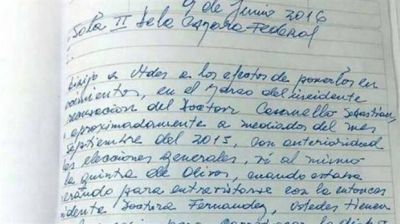 9 de Junio 2016
Sala II de la Camara Federal
dirijo a Udes a los efectos de ponerlos en
, en el marco del incidente
recusacion del Doctor Casanello Sebastian,
aproximadamente a mediados del mes
septiembre del 2015, con anterioridad
las elecciones generales, vi al mismo
la quinta de Olivos, cuando estaba
para entrevistarse con la entonces
identa Doctora Fernandez, Ustedes tienen